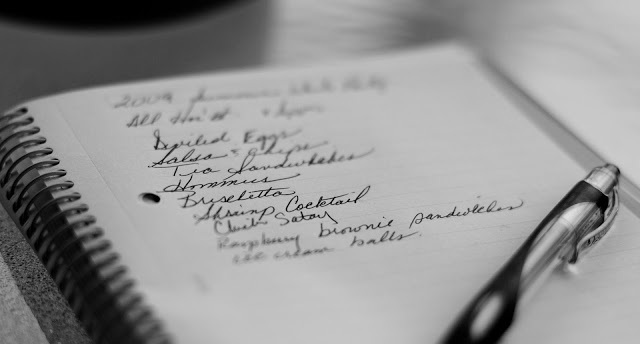 2009 Summer White Party
All Hor'
Deviled Eggs
Salsa & Chips
Tea Sandwhiches
Hommus
Bruschetta
Shrimp Cocktail
Satay
Raspberry brownie sandwiches
ice cream balls.